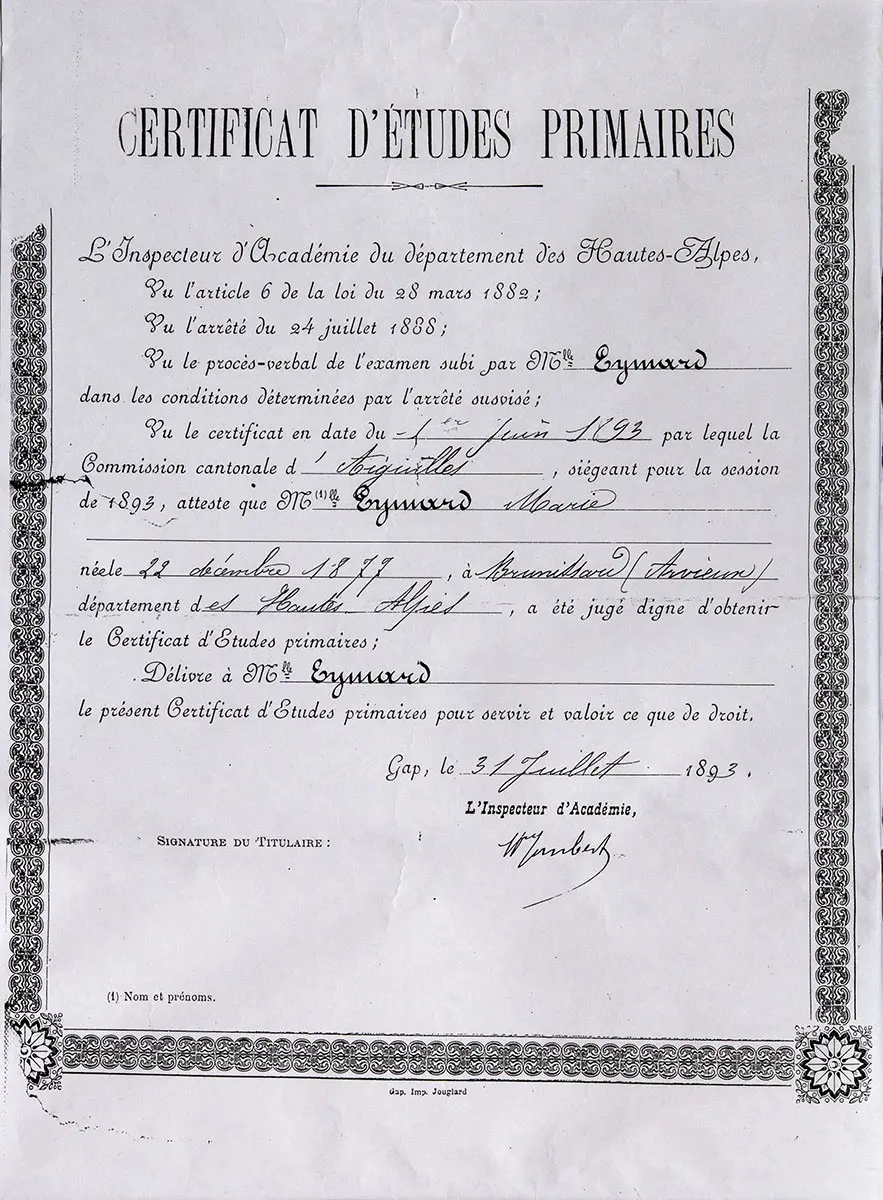 CERTIFICAT D'ÉTUDES PRIMAIRES
L'Inspecteur d'Académie du département des Hautes-Alpes,
Vu l'article 6 de la loi du 28 mars 1882;
Vu l'arrêté du 24 juillet 1888;
Vu le procès-verbal de l'examen subi par Mlle Eymard
dans les conditions déterminées par l'arrêté susvisé;
Vu le certificat en date du 1er Juin 1893 par lequel la
Commission cantonale d'Aiguilles, siégeant pour la session
de 1893, atteste que M(1)lle Eymard Marie
née le 22 décembre 1877, à Brunissard (Arvieux)
département des Hautes-Alpes, a été jugé digne d'obtenir
le Certificat d'Etudes primaires;
Délivre à Mlle Eymard
le présent Certificat d'Etudes primaires pour servir et valoir ce que de droit.
Gap, le 31 Juillet 1893.
L'Inspecteur d'Académie,
SIGNATURE DU TITULAIRE :
(1) Nom et prénoms.
Gap. Imp. Jouglard